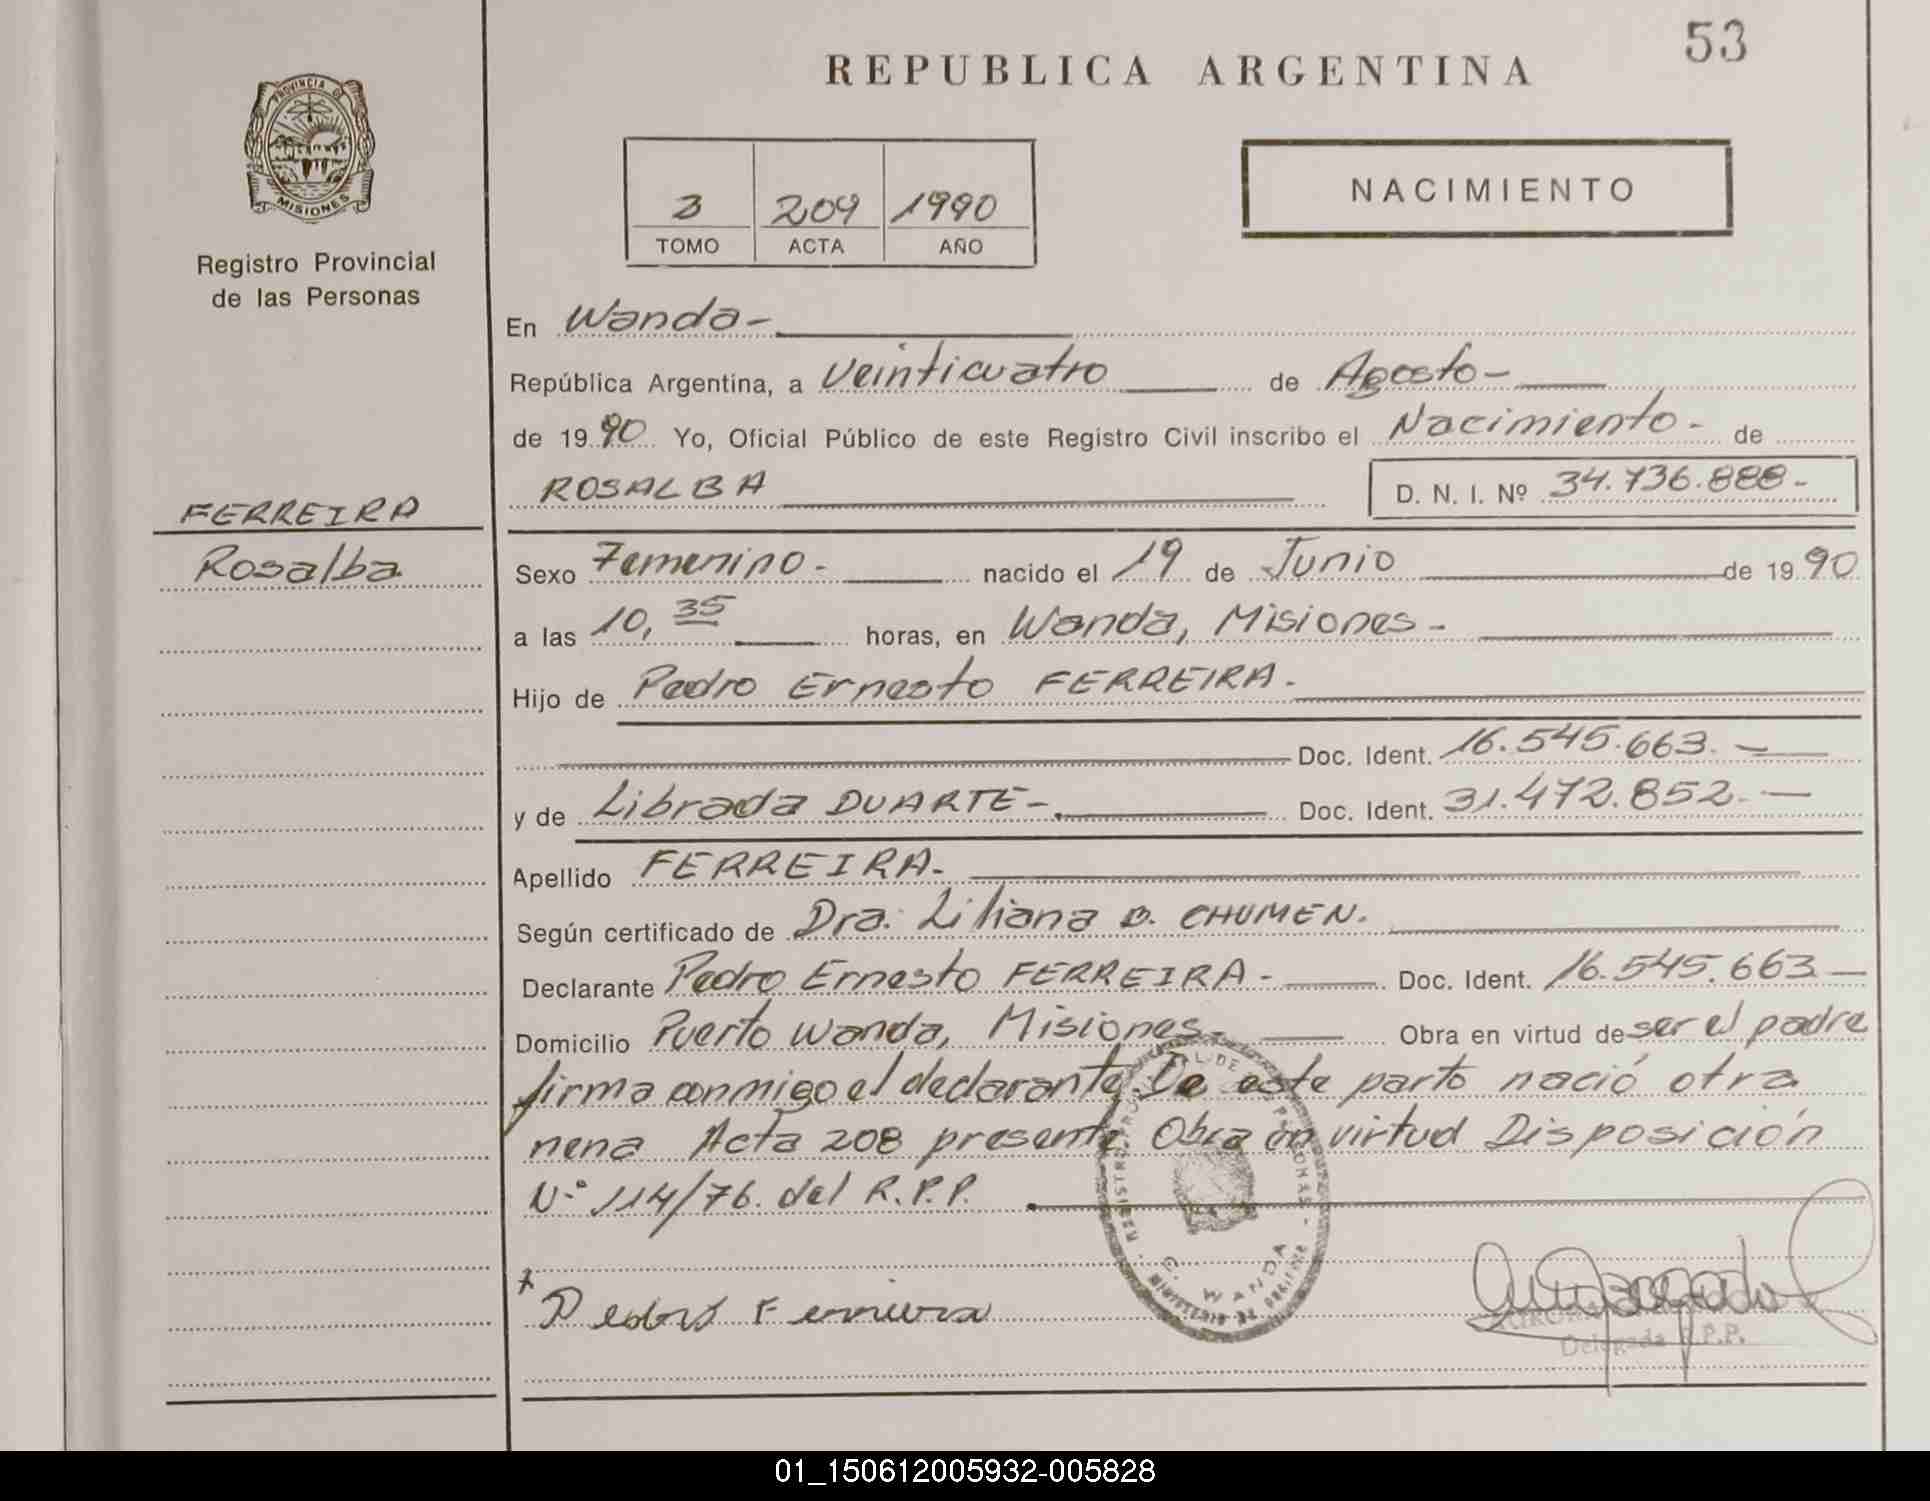 53
REPUBLICA ARGENTINA
PROVINCIA DE
MISIONES
Registro Provincial
de las Personas
NACIMIENTO
3 209 1990
TOMO ACTA AÑO
En Wanda-
República Argentina, a Veinticuatro de Agosto-
de 1990 Yo, Oficial Público de este Registro Civil inscribo el Nacimiento- de
ROSALBA D. N. I. Nº 34.736.888-
FERREIRA
Rosalba
Sexo Femenino- nacido el 19 de Junio de 1990
a las 10,35 horas, en Wanda, Misiones-
Hijo de Pedro Ernesto FERREIRA-
Doc. Ident. 16.545.663.-
y de Librada DUARTE- Doc. Ident. 31.472.852.-
Apellido FERREIRA-
Según certificado de Dra. Liliana B. CHUMEN.
Declarante Pedro Ernesto FERREIRA- Doc. Ident. 16.545.663-
Domicilio Puerto Wanda, Misiones- Obra en virtud de ser el padre
firma conmigo el declarante. De este parto nació otra
nena Acta 208 presente Obra en virtud Disposición
N.º 114/76. del R.P.P.
WANDA
Pedro Ferreira
Delegada R.P.P.
01_150612005932-005828